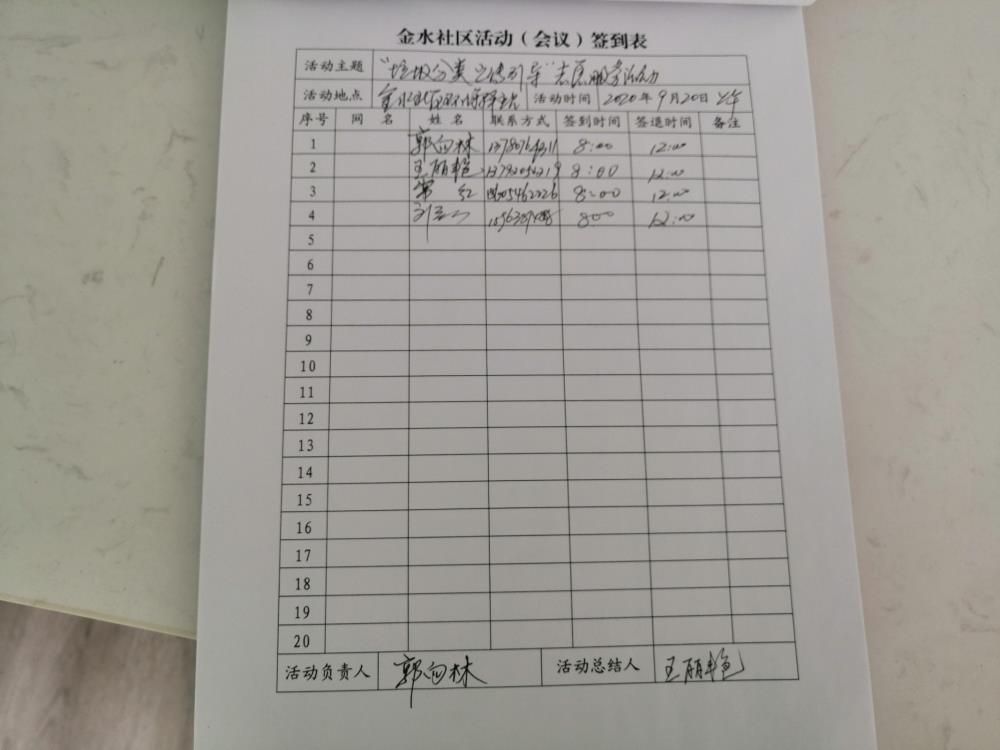 金水社区活动（会议）签到表
活动主题 "垃圾分类宣传引导"志愿服务活动
活动地点 金水社区 活动时间 2020年9月20日 上午
序号 网名 姓名 联系方式 签到时间 签退时间 备注
1 郭向林 8:00 12:00
2 王丽艳 8:00 12:00
3 常红 8:00 12:00
4 8:00 12:00
5
6
7
8
9
10
11
12
13
14
15
16
17
18
19
20
活动负责人 郭向林 活动总结人 王丽艳